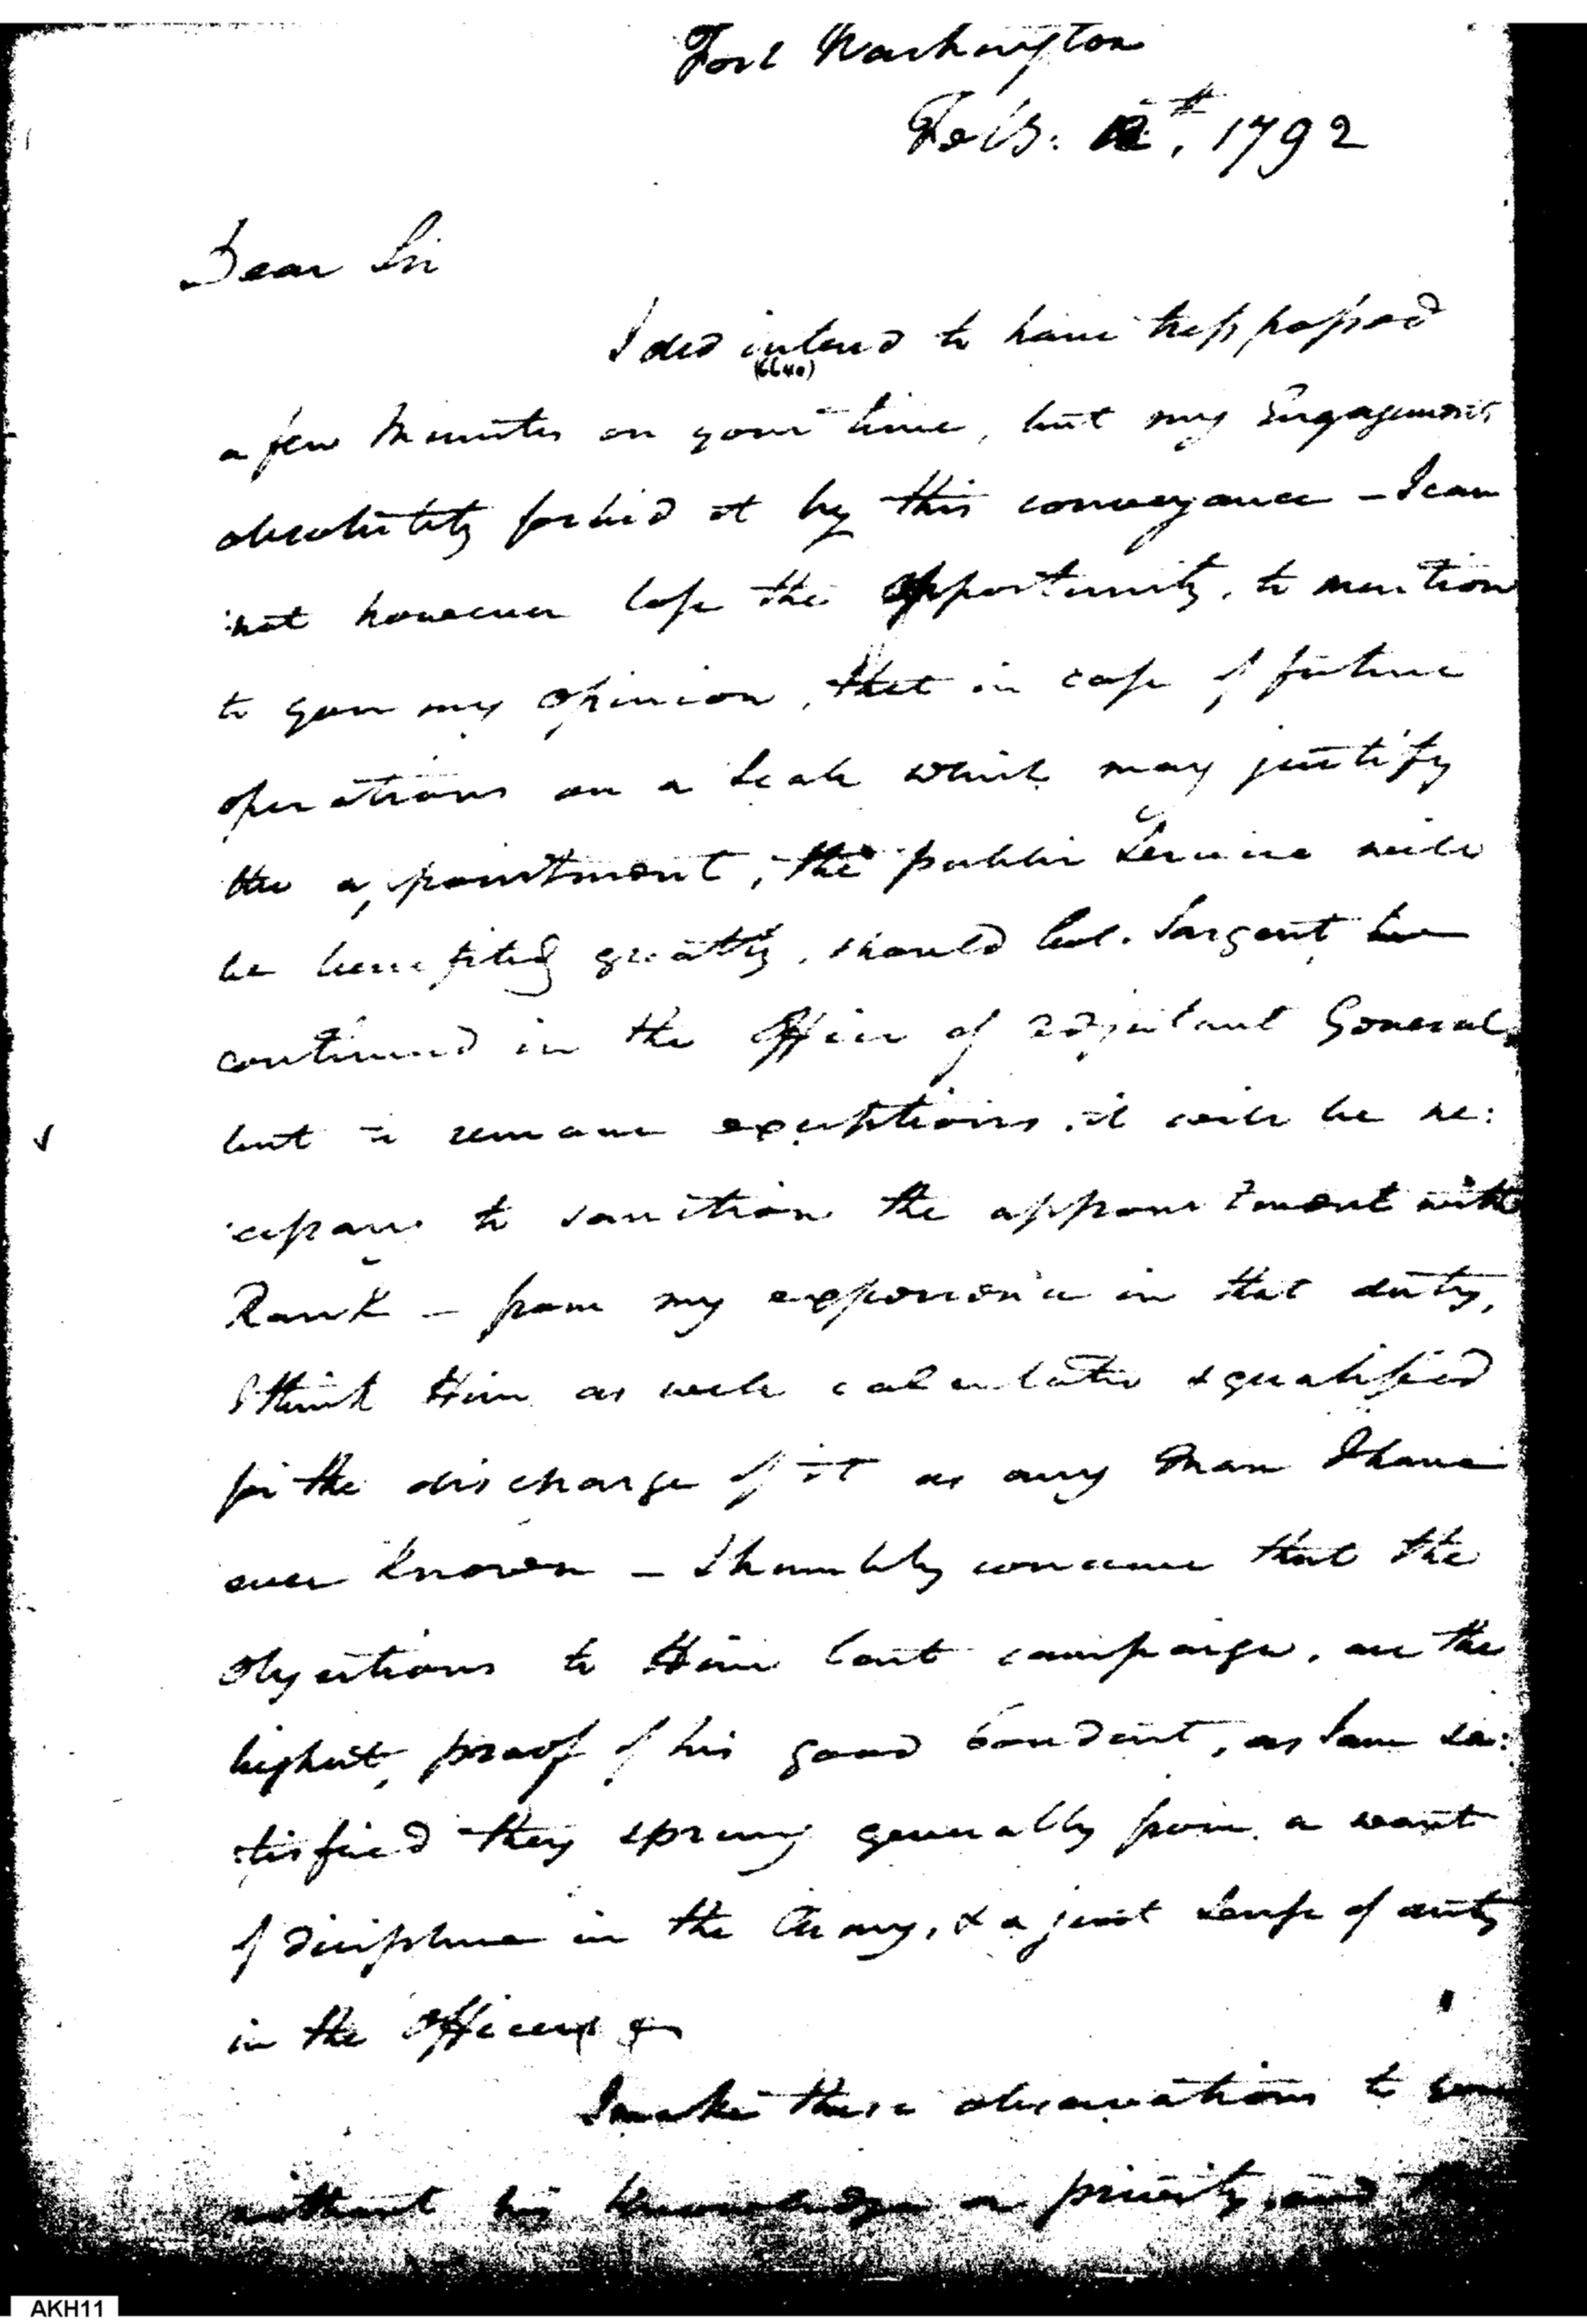 Fort Washington
Feb: 12th, 1792
Dear Sir
I did intend to have trespassed
a few Minutes on your time, but my Engagements
absolutely forbid it by this conveyance - I can
not however lose the Opportunity, to mention
to you my Opinion, that in case of future
operations on a Scale which may justify
the appointment, the public Service will
be benefited greatly, should Col. Sargent, be
continued in the Office of adjutant General,
but to remove exceptions, it will be ne:
cessary to sanction the appointment with
Rank - from my experience in that duty,
I think Him as well calculated & qualified
for the discharge of it as any Man I have
ever known - I humbly conceive that the
Objections to Him last campaign, are the
highest, proof of his good Conduct, as I am sa:
tisfied they sprung generally from a want
of Discipline in the Army, & a just Sense of duty
in the Officers
I make these observations to you
without his knowledge or privity, and
AKH11